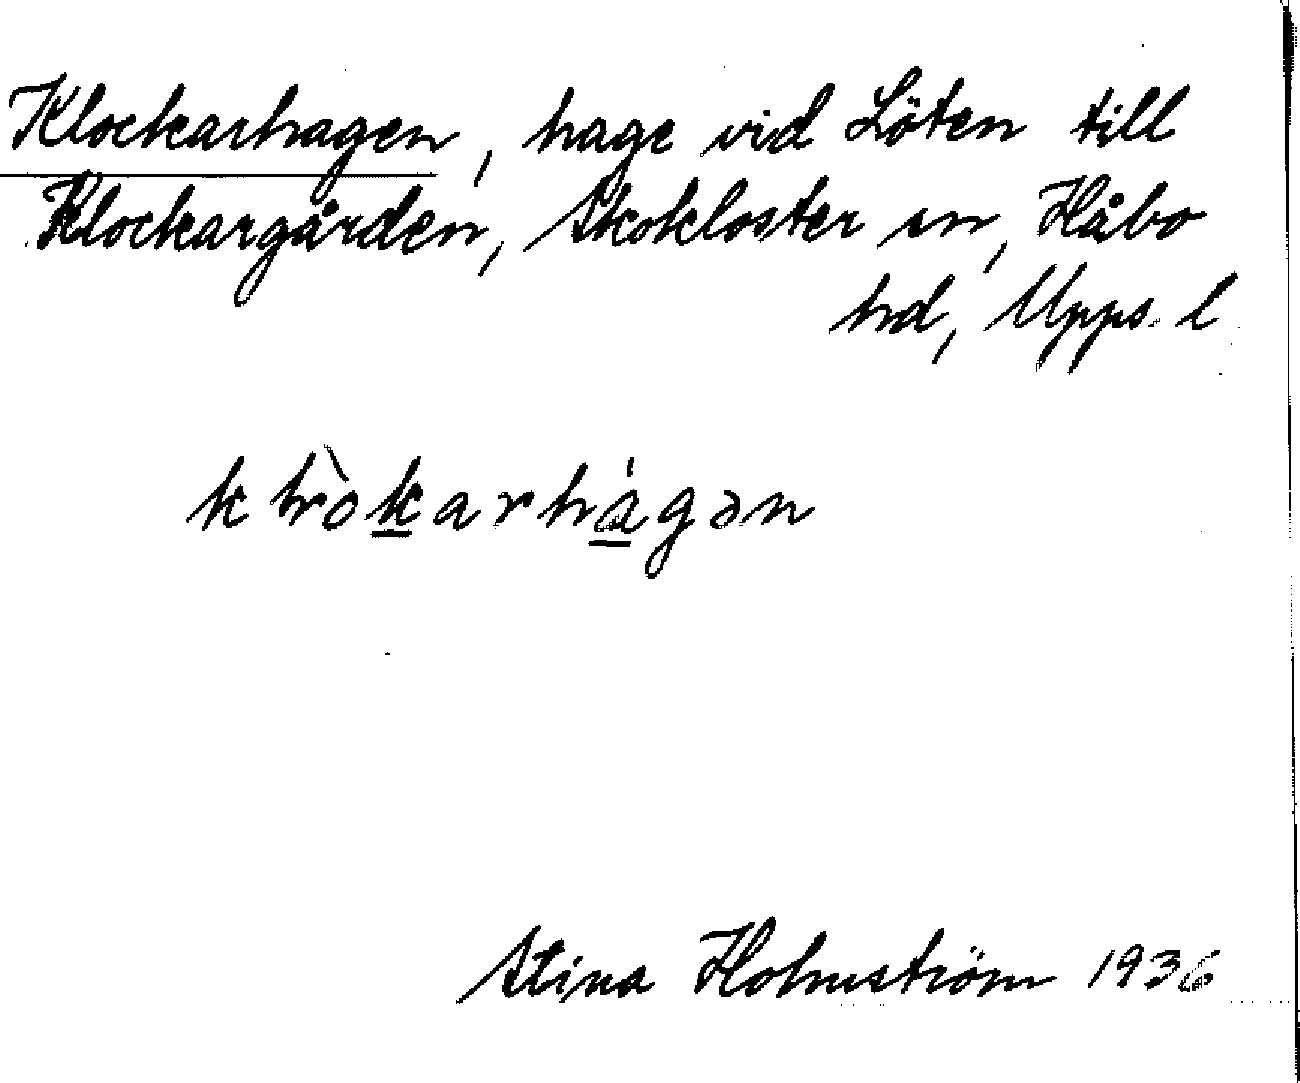 Klockarhagen, hage vid Löten till
Klockargården, Skokloster sn, Håbo
hd, Upps. l
klòkarhágən
Stina Holmström 1936